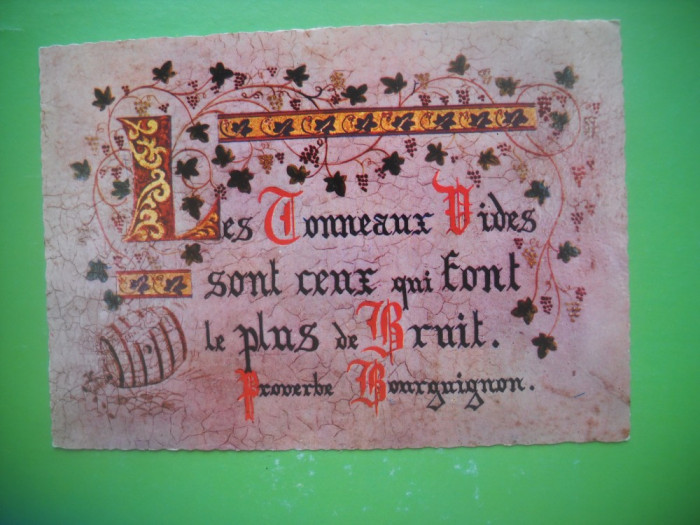 Les Tonneaux Vides
sont ceux qui font
le plus de Bruit.
Proverbe Bourguignon.